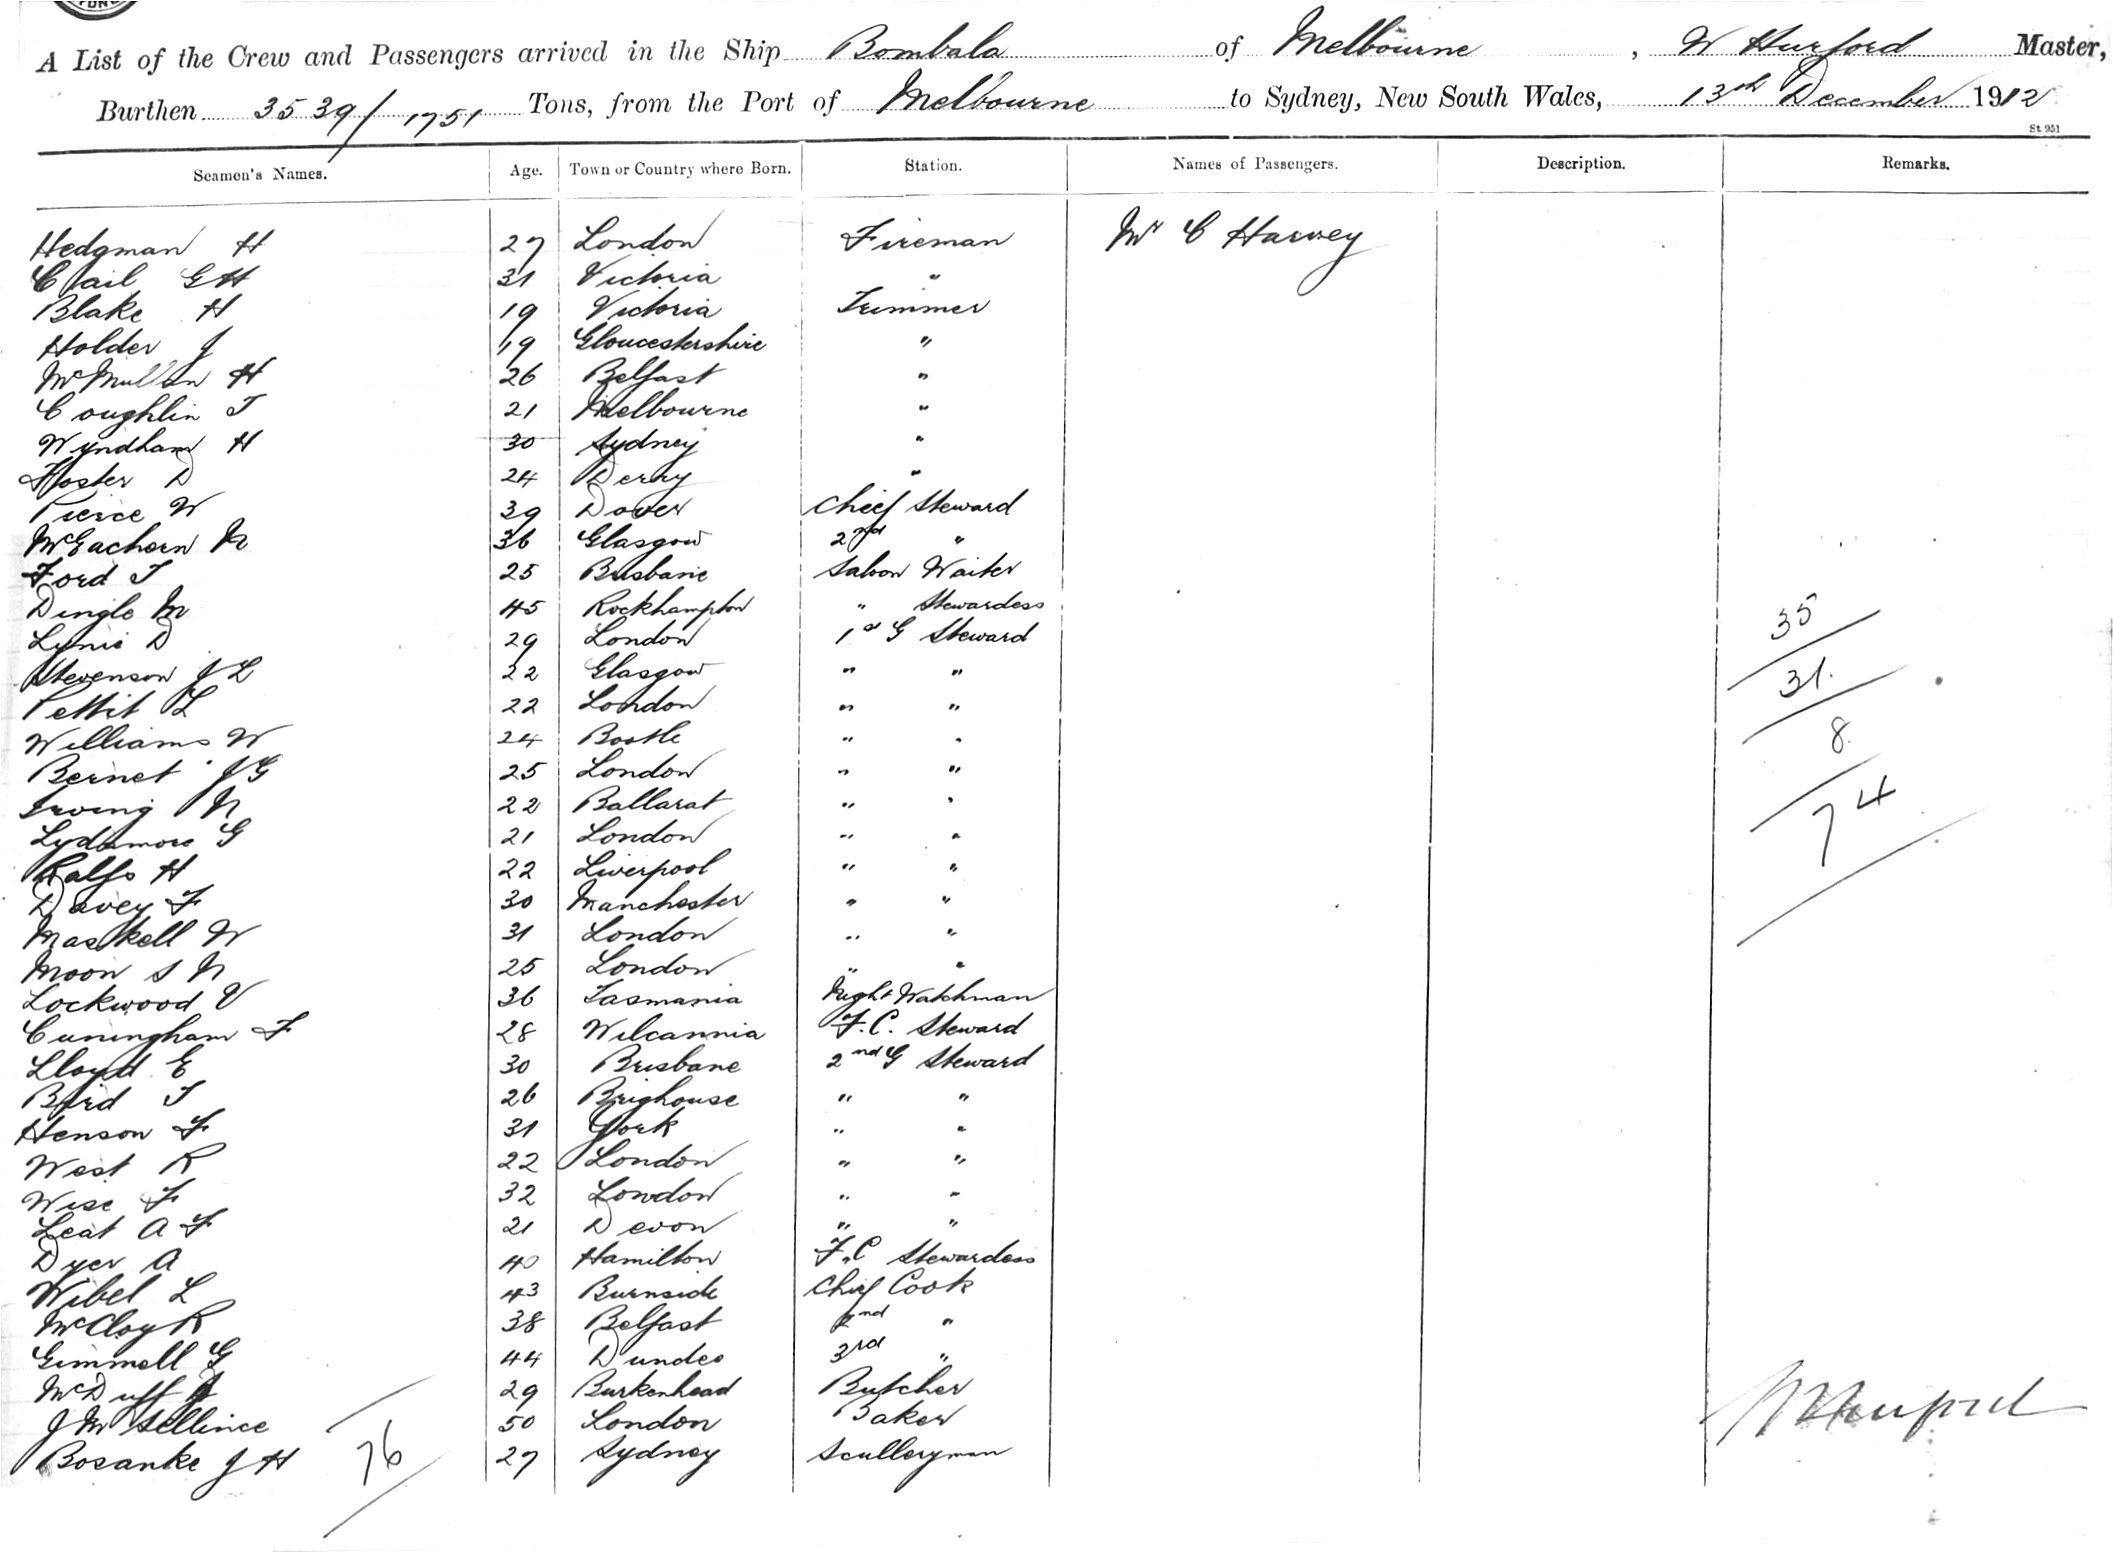 A List of the Crew and Passengers arrived in the Ship Bombala of Melbourne, W Hurford Master,
Burthen 3539/1751 Tons, from the Port of Melbourne to Sydney, New South Wales, 13th December 1912
St. 951
Seamen's Names. Age. Town or Country where Born. Station. Names of Passengers. Description. Remarks.
Hedgman H 27 London Fireman Mr C Harvey
Clail G H 31 Victoria "
Blake H 19 Victoria Trimmer
Holder J 19 Gloucestershire "
McMullan H 26 Belfast "
Coughlin T 21 Melbourne "
Wyndham H 30 Sydney "
Foster D 24 Derry "
Pierce W 39 Dover Chief Steward
McEachern N 36 Glasgow 2nd "
Ford T 25 Brisbane Saloon Waiter
Dingle M 45 Rockhampton " Stewardess
D 29 London 1st G Steward 35
Stevenson J L 22 Glasgow " " 31.
Pettit L 22 London " "
Williams W 24 Bootle " " 8.
Bernet J G 25 London " "
Irving N 22 Ballarat " " 74
Lydamore G 21 London " "
Ralfs H 22 Liverpool " "
Davey F 30 Manchester " "
Maskell W 31 London " "
Moon S N 25 London " "
Lockwood V 36 Tasmania Night Watchman
Cuningham F 28 Wilcannia F.C. Steward
Lloyd E 30 Brisbane 2nd G Steward
Bird T 26 Brighouse " "
Henson F 31 York " "
West R 22 London " "
Wise F 32 London " "
Leat A F 21 Devon " "
Dyer A 40 Hamilton F.C Stewardess
Wibel L 43 Burnside Chief Cook
McCloy R 38 Belfast 2nd "
Gemmell G 44 Dundee 3rd "
McDuff 29 Burkenhead Butcher
J M Sellince 50 London Baker W Hurford
Bosanke J H 76 27 Sydney Sculleryman